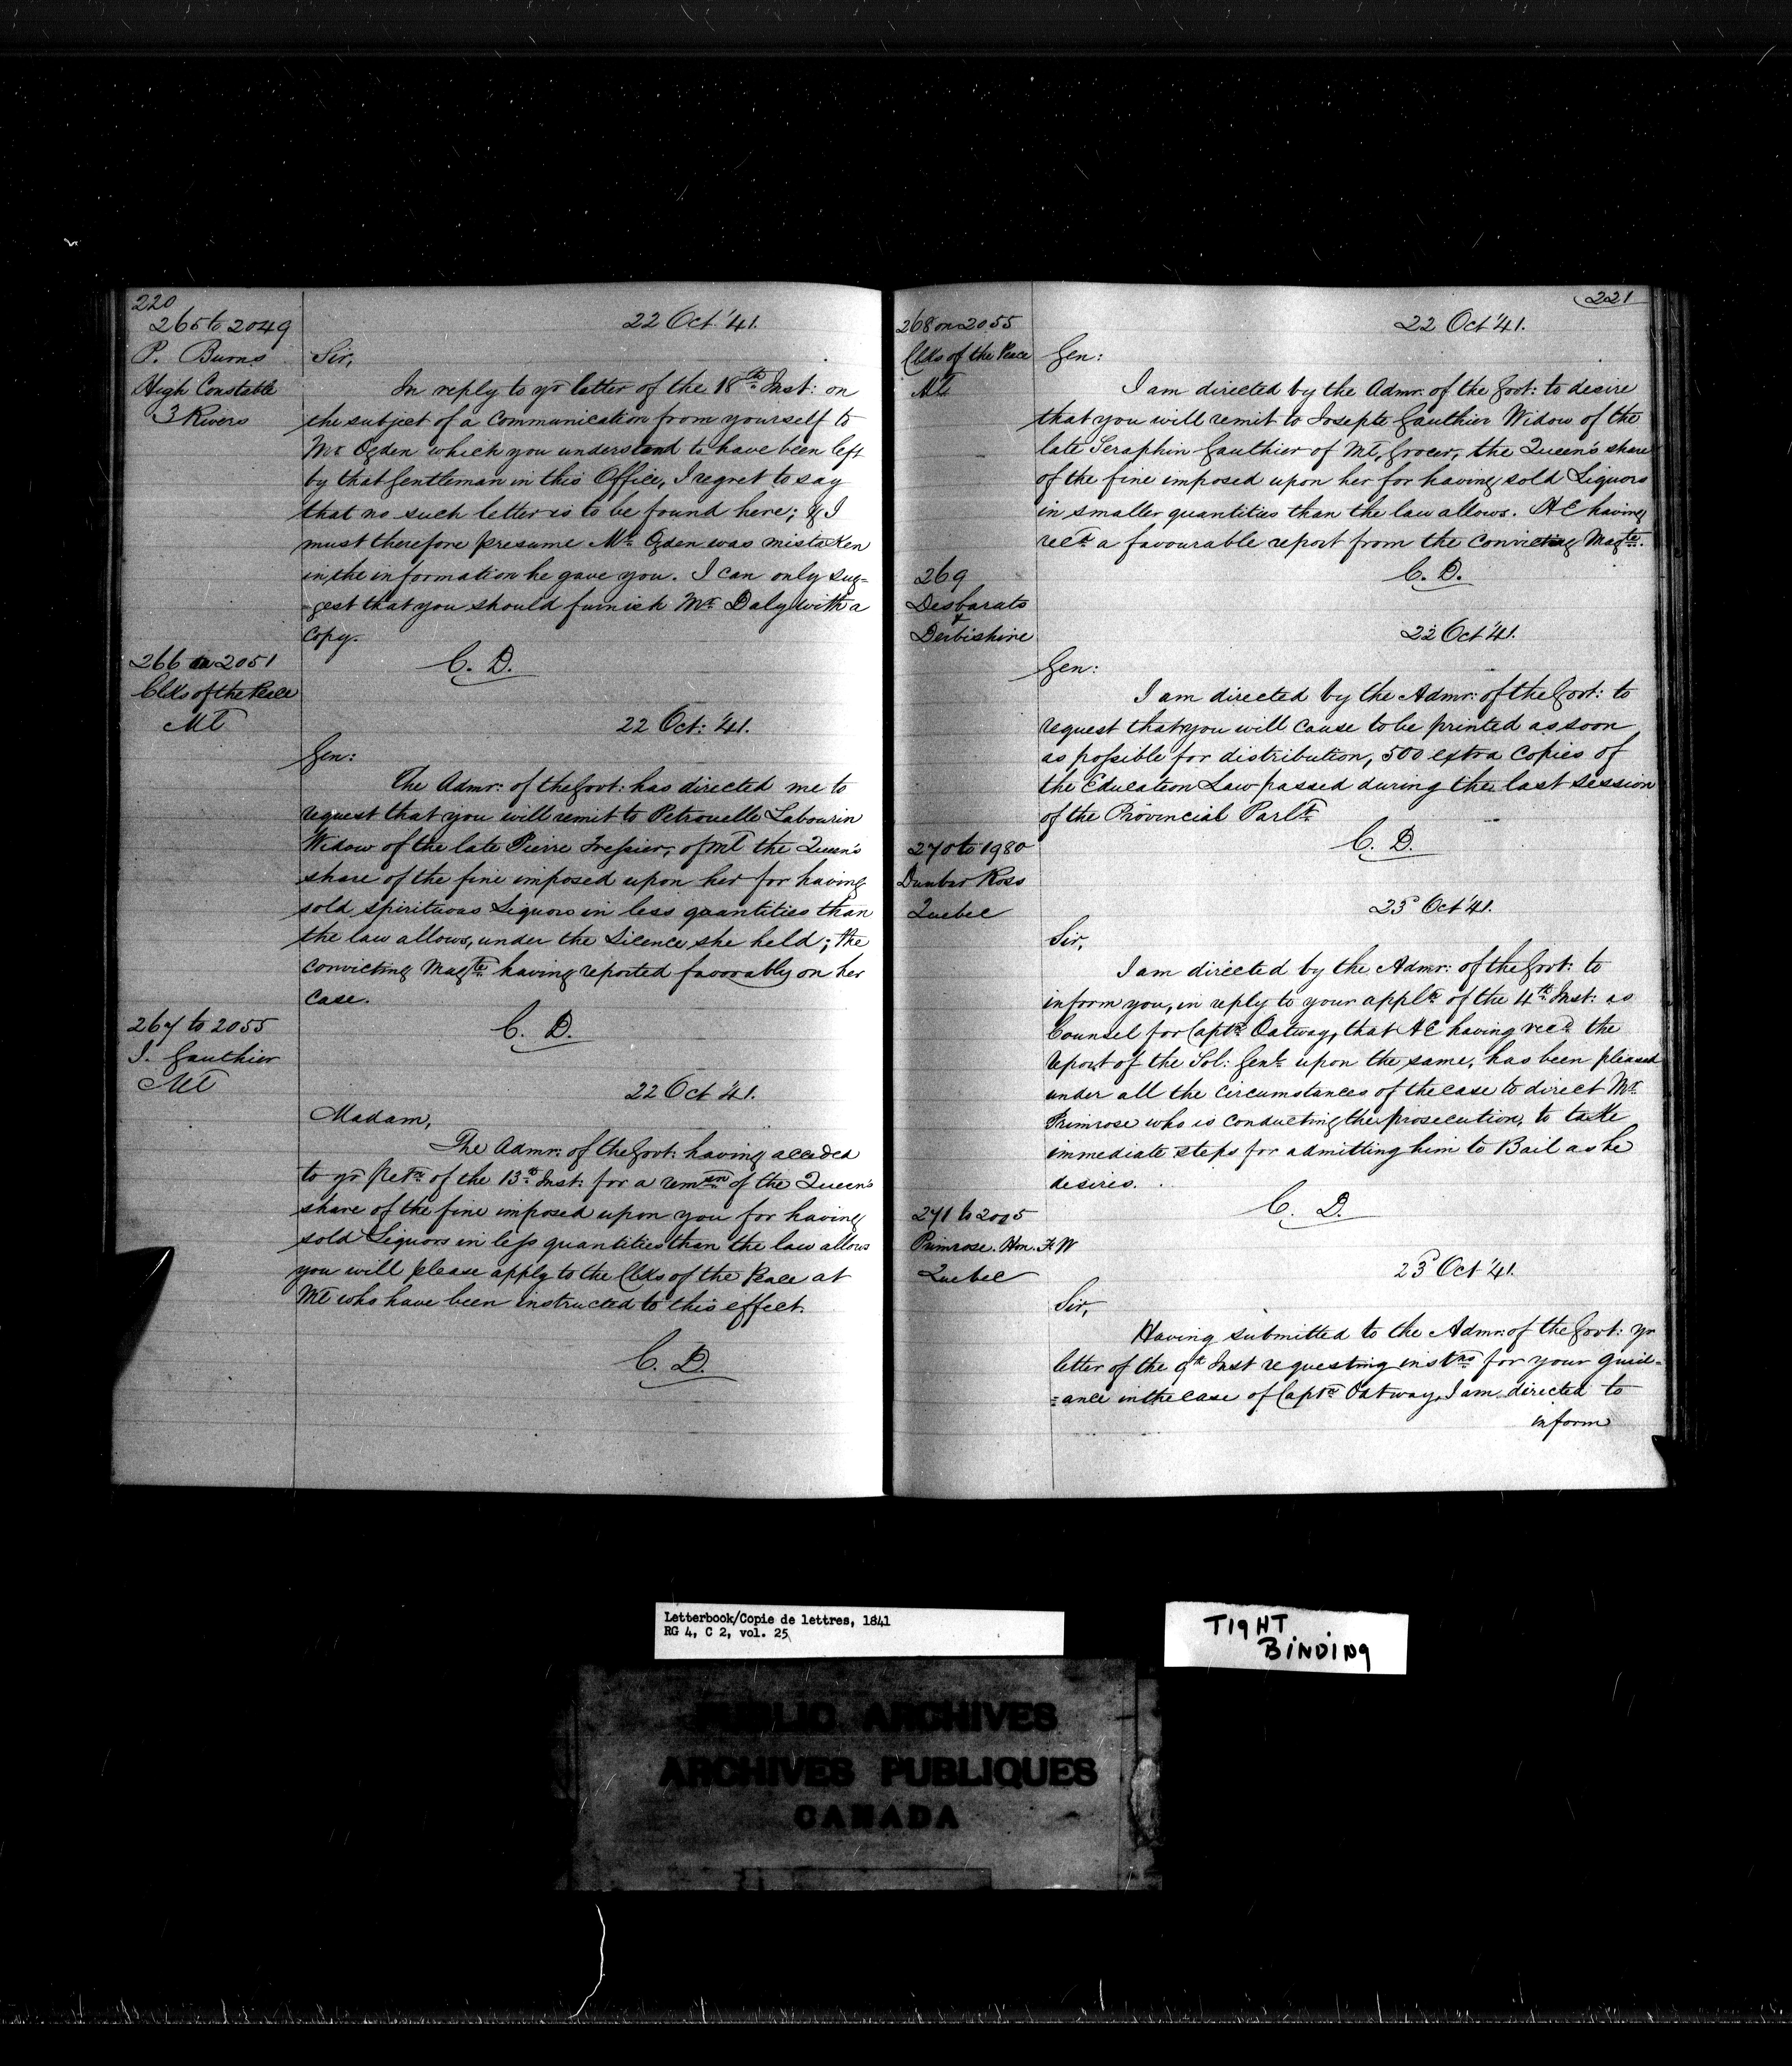 220
265 to 2049
P. Burns
High Constable
3 Rivers
22 Oct. '41.
Sir,
In reply to yr letter of the 18th Inst: on
the subject of a communication from yourself to
Mr Ogden which you understand to have been left
by that Gentleman in this Office, I regret to say
that no such letter is to be found here; & I
must therefore presume Mr Ogden was mistaken
in the information he gave you. I can only sug=
=gest that you should furnish Mr Daly with a
copy.
C. D.
266 on 2051
Clks of the Peace
Ml
22 Oct: '41.
Gen:
The Admr: of the Govt: has directed me to
request that you will remit to Petrouelle Labourin
Widow of the late Pierre Tressier, of Ml the Queen's
share of the fine imposed upon her for having
sold spirituous Liquors in less quantities than
the law allows, under the Licence she held; the
convicting Magte having reported favorably on her
case.
C. D.
267 to 2055
J. Gauthier
Ml
22 Oct '41.
Madam,
The Admr: of the Govt: having acceded
to yr Petn of the 13th Inst: for a remon of the Queen's
share of the fine imposed upon you for having
sold Liquors in less quantities than the law allows
you will please apply to the Clks of the Peace at
Ml who have been instructed to this effect.
C. D.
221
268 on 2055
Clks of the Peace
Ml
22 Oct '41.
Gen:
I am directed by the Admr: of the Govt: to desire
that you will remit to Josepte Gauthier Widow of the
late Seraphin Gauthier of Ml, Grocer, the Queen's share
of the fine imposed upon her for having sold Liquors
in smaller quantities than the law allows. H E having
recd a favourable report from the convicting Magte.
C. D.
269
Desbarats
&
Derbishire
22 Oct '41.
Gen:
I am directed by the Admr: of the Govt: to
request that you will cause to be printed as soon
as possible for distribution, 500 extra copies of
the Education Law passed during the last session
of the Provincial Parlt
C. D.
270 to 1980
Dunbar Ross
Quebec
23d Oct '41.
Sir,
I am directed by the Admr: of the Govt: to
inform you, in reply to your appln of the 4th Inst: as
Counsel for Captn Oatway, that H E having recd the
report of the Sol: Genl upon the same, has been pleased
under all the circumstances of the case to direct Mr
Primrose who is conducting the prosecution, to take
immediate steps for admitting him to Bail as he
desires.
C. D.
271 to 2005
Primrose. Hon. F W
Quebec
23d Oct '41.
Sir,
Having submitted to the Admr: of the Govt: yr
letter of the 9th Inst requesting instns for your guid=
=ance in the case of Captn Oatway, I am directed to
inform
Letterbook/Copie de lettres, 1841
RG 4, C 2, vol. 25
TIGHT
BINDING
PUBLIC ARCHIVES
ARCHIVES PUBLIQUES
CANADA